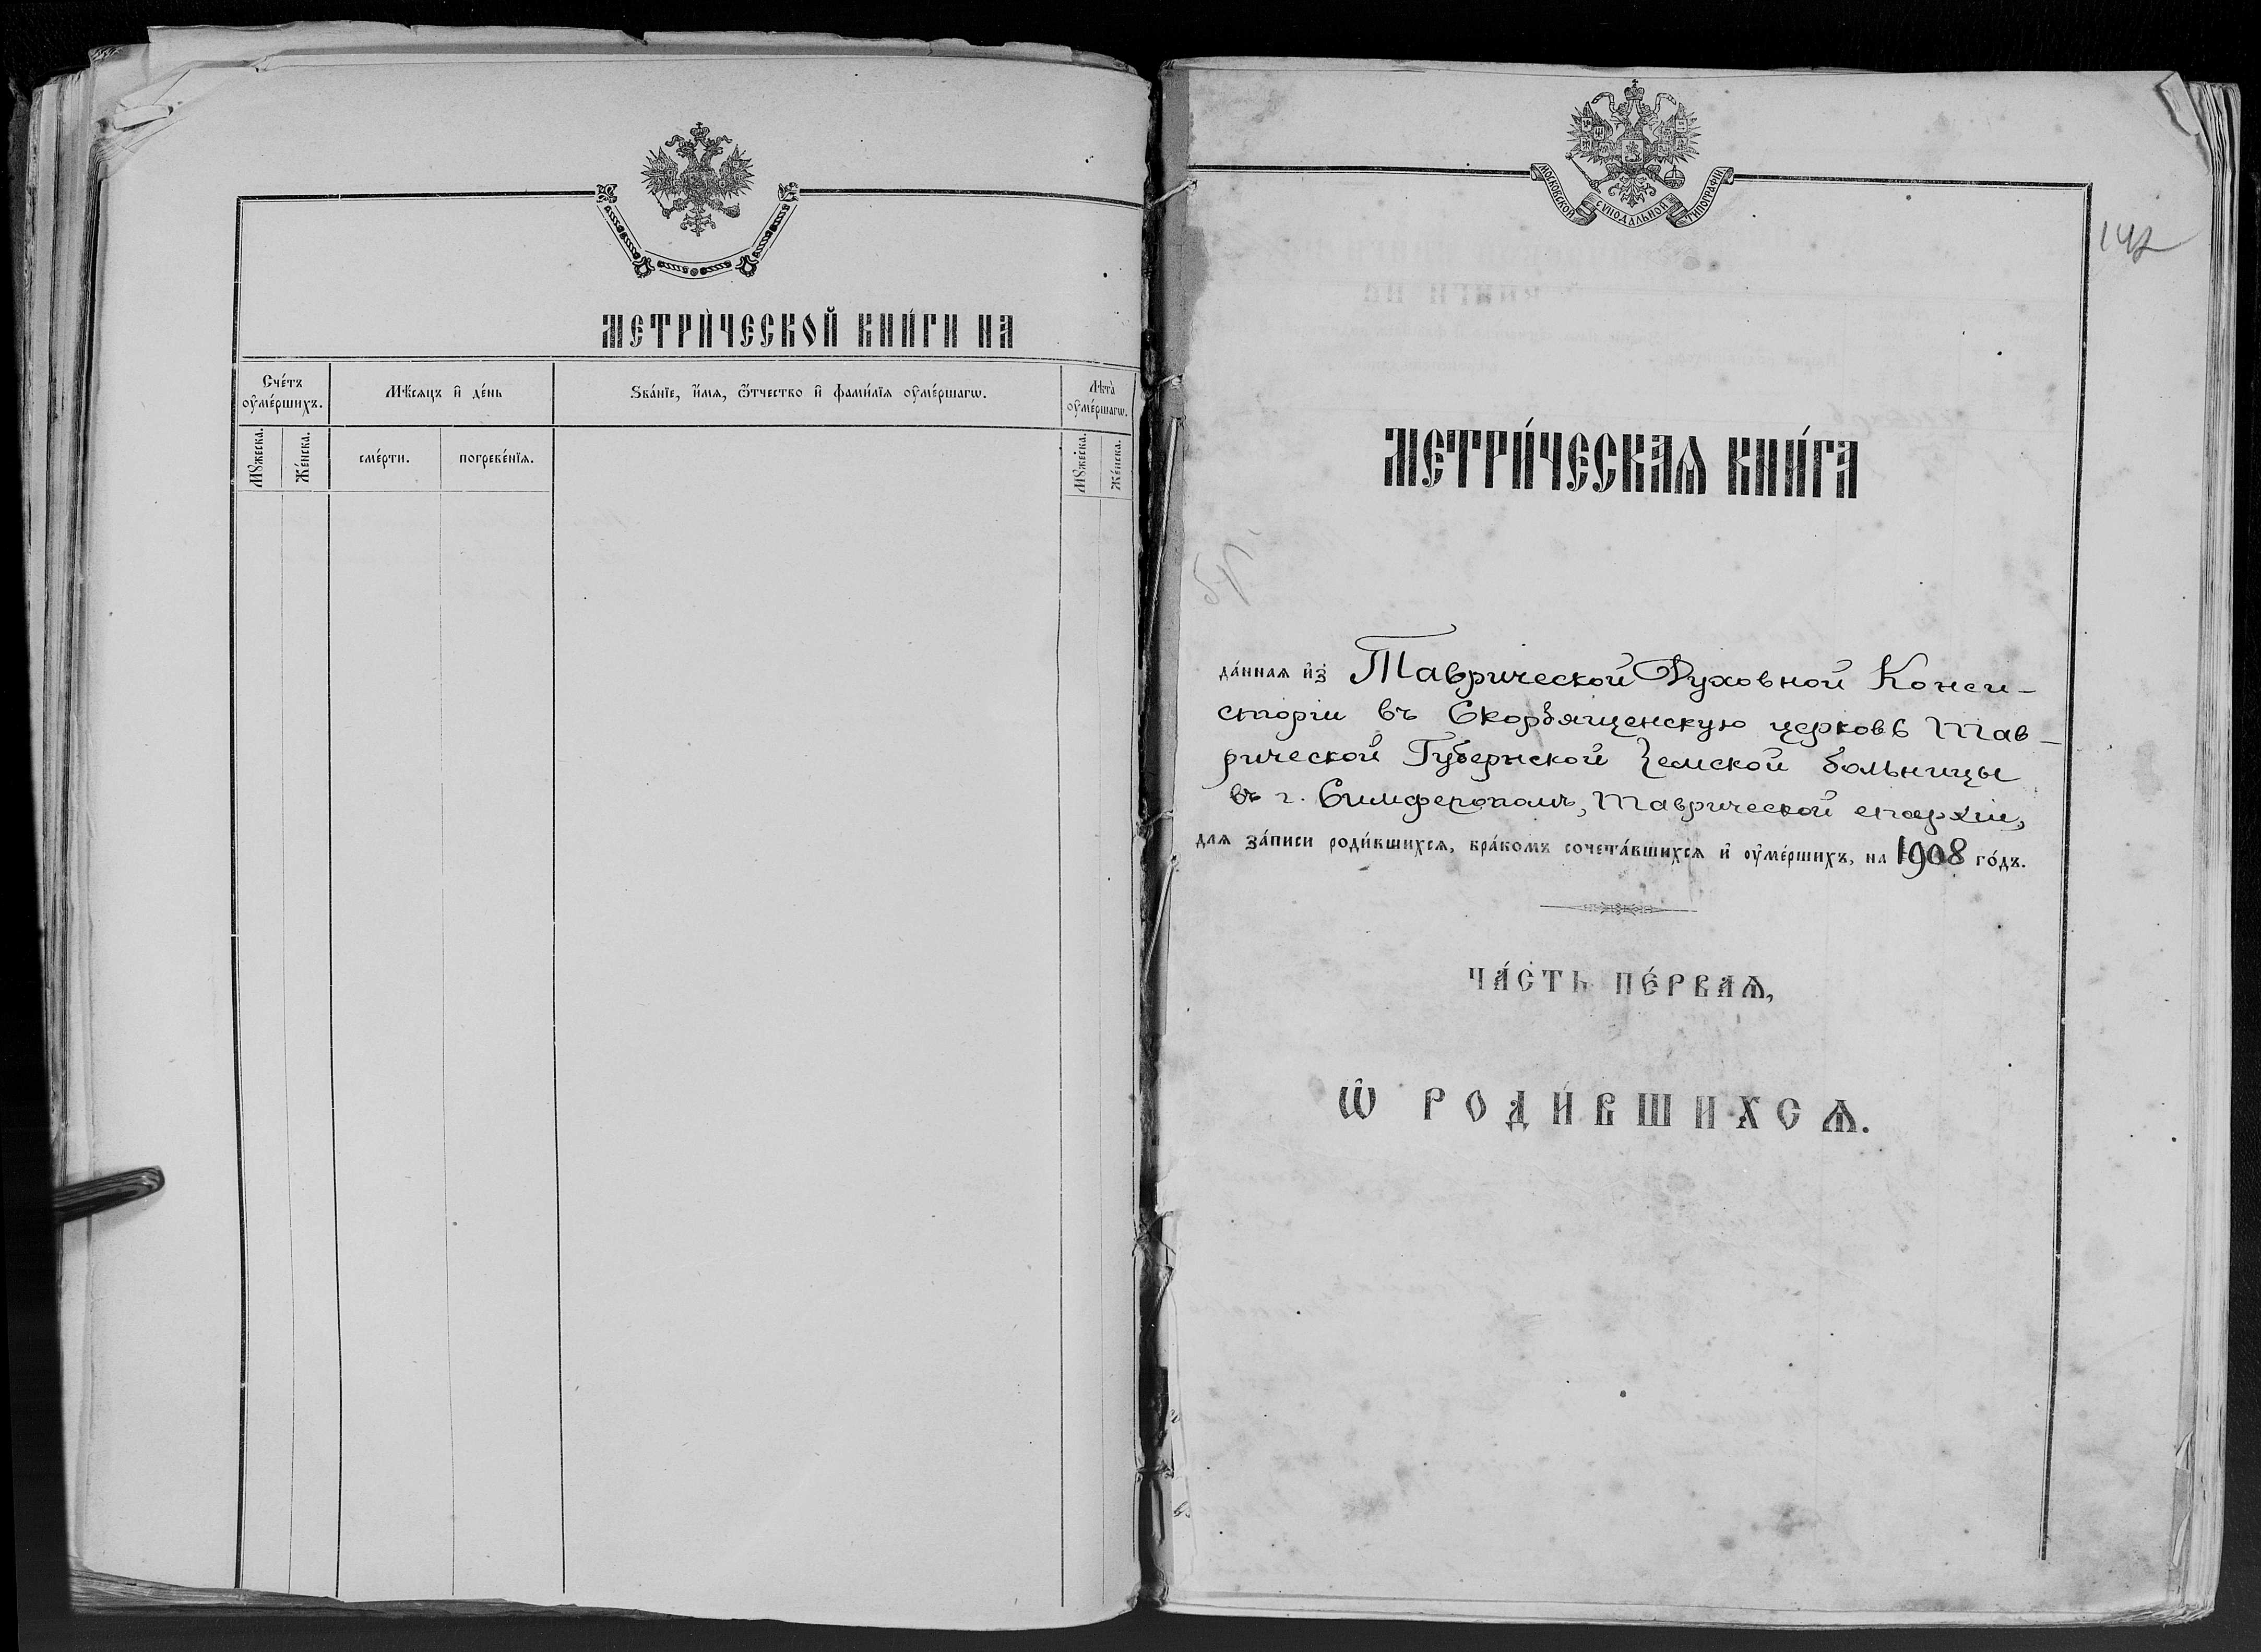 МЕТРИ́ЧЕСКОЙ КНИ́ГИ НА
Сче́тъ
оу҆ме́ршихъ.
Мѣ́сяцъ и҆ де́нь
Ѕва́нїе, и҆́мя, ѻ҆́тчество и҆ фами́лїя оу҆ме́ршагѡ.
Лѣта̀
оу҆ме́ршагѡ.
Мꙋ́жеска.
Же́нска.
сме́рти.
погребе́нїя.
Мꙋ́жеска.
Же́нска.
МОСКОВСКОЙ СѴНОДАЛЬНОЙ ТИПОГРАФІИ
МЕТРИ́ЧЕСКАѦ КНИ́ГА
да́нная и҆з̾ Таврической Духовной Конси-
сторіи въ Скорбященскую церковь Тав-
рической Губернской Земской больницы
въ г. Симферополѣ, Таврической епархіи,
для за́писи роди́вшихся, бра́комъ сочета́вшихся и҆ оу҆ме́ршихъ, на 1908 го́дъ.
ЧА́СТЬ ПЕ́РВАѦ,
Ѡ҆ РОДИ́ВШИХСѦ.